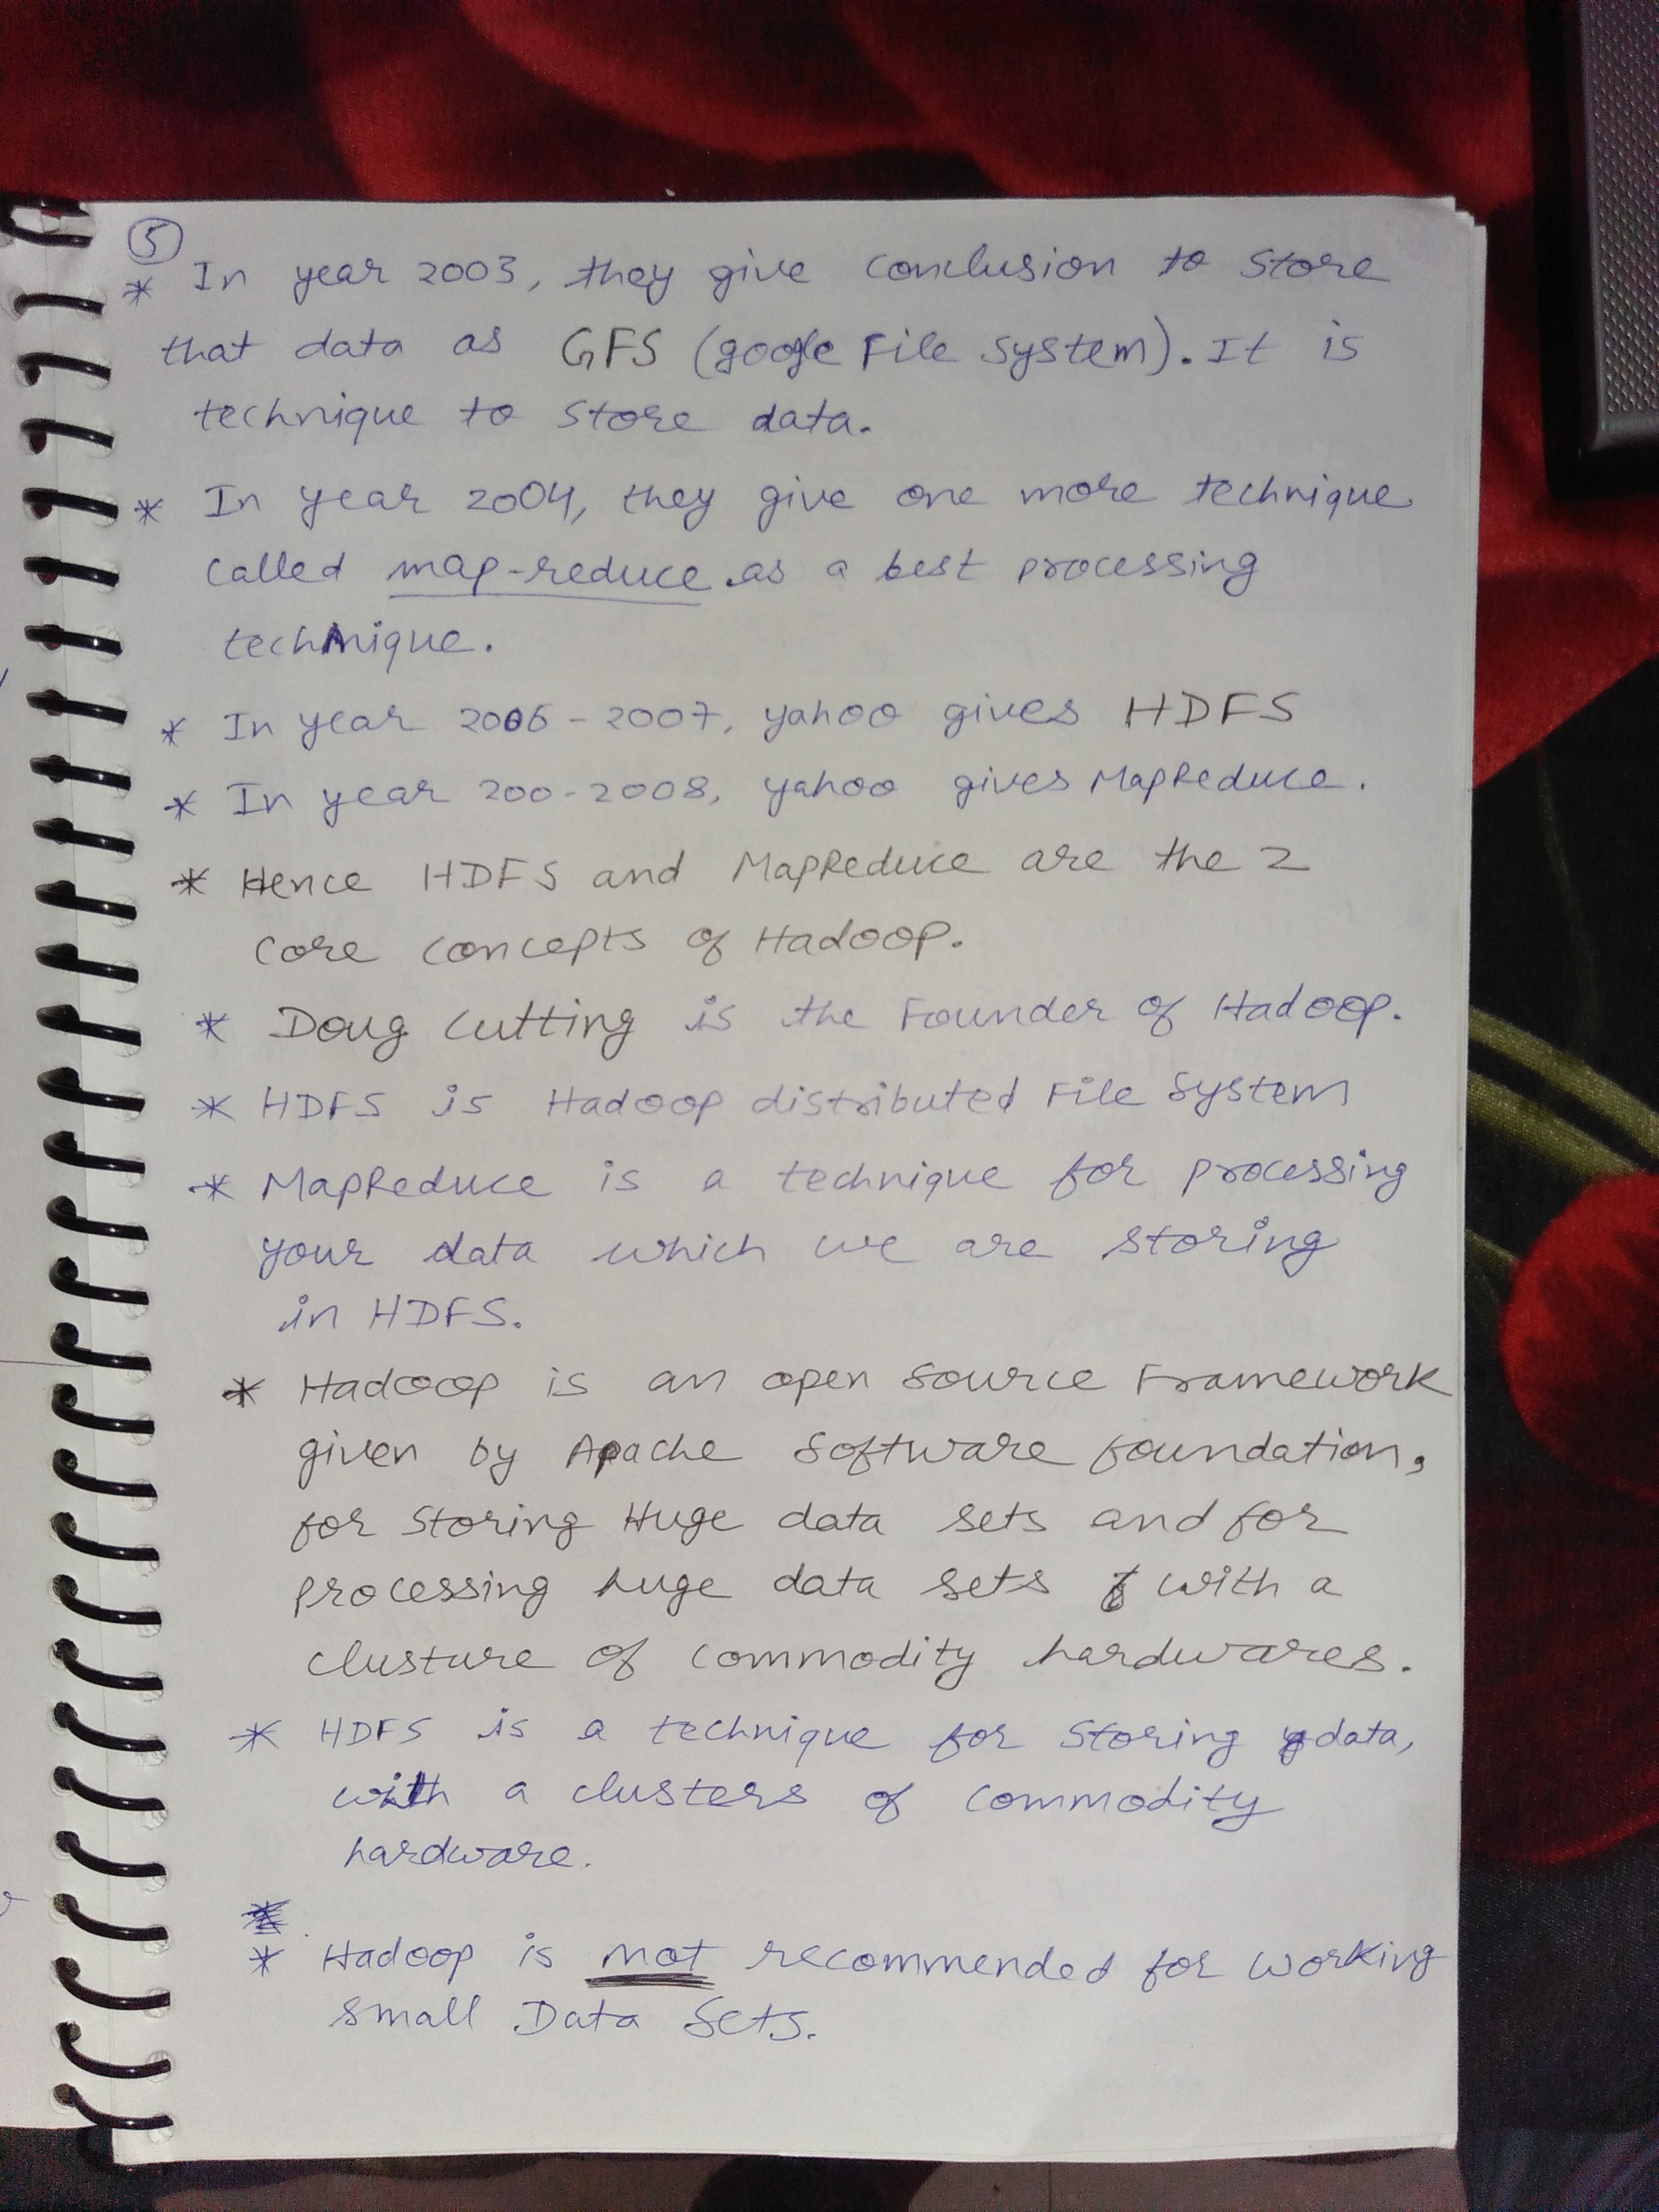 5
* In year 2003, they give conclusion to store
that data as GFS (google File System). It is
technique to store data.
* In year 2004, they give one more technique
called map-reduce as a best processing
technique.
* In year 2006-2007, yahoo gives HDFS
* In year 200-2008, yahoo gives MapReduce.
* Hence HDFS and MapReduce are the 2
core concepts of Hadoop.
* Doug Cutting is the Founder of Hadoop.
* HDFS is Hadoop distributed File System
* MapReduce is a technique for processing
your data which we are storing
in HDFS.
* Hadoop is an open source Framework
given by Apache Software foundation,
for storing Huge data sets and for
processing huge data sets with a
clusture of commodity hardwares.
* HDFS is a technique for storing data,
with a clusters of commodity
hardware.
* Hadoop is not recommended for working
small Data Sets.